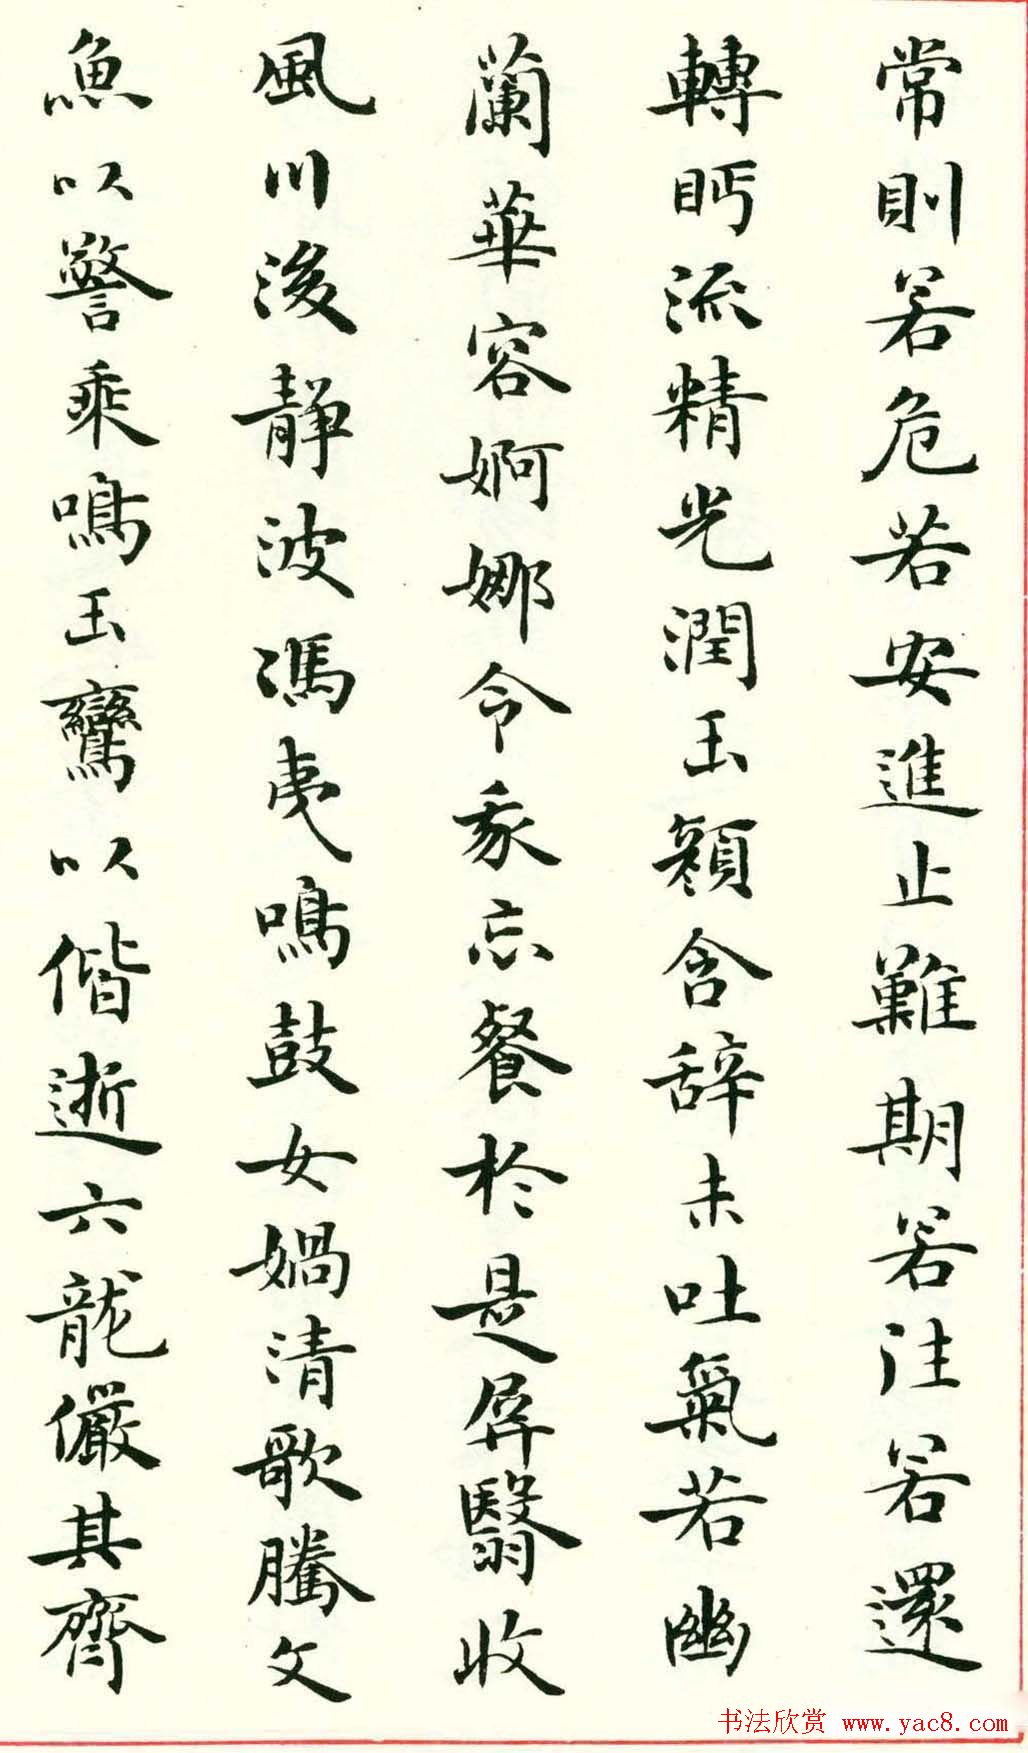 常則若危若安進止難期若往若還
轉眄流精光潤玉顏含辞未吐氣若幽
蘭華容婀娜令我忘餐於是屏翳收
風川後靜波馮夷鳴鼓女媧清歌騰文
魚以警乘鳴玉鸞以偕逝六龍儼其齊
书法欣赏 www.yac8.com